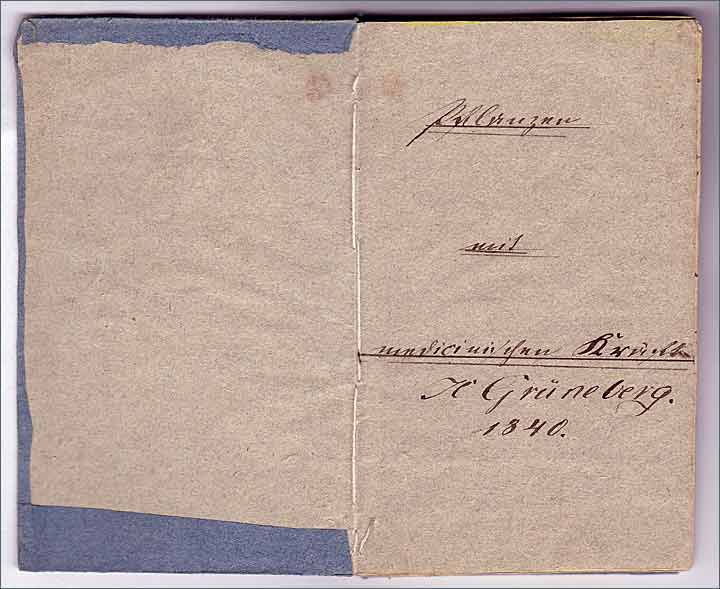 Pflanzen
mit
medicinischen Kräften
H Grüneberg.
1840.